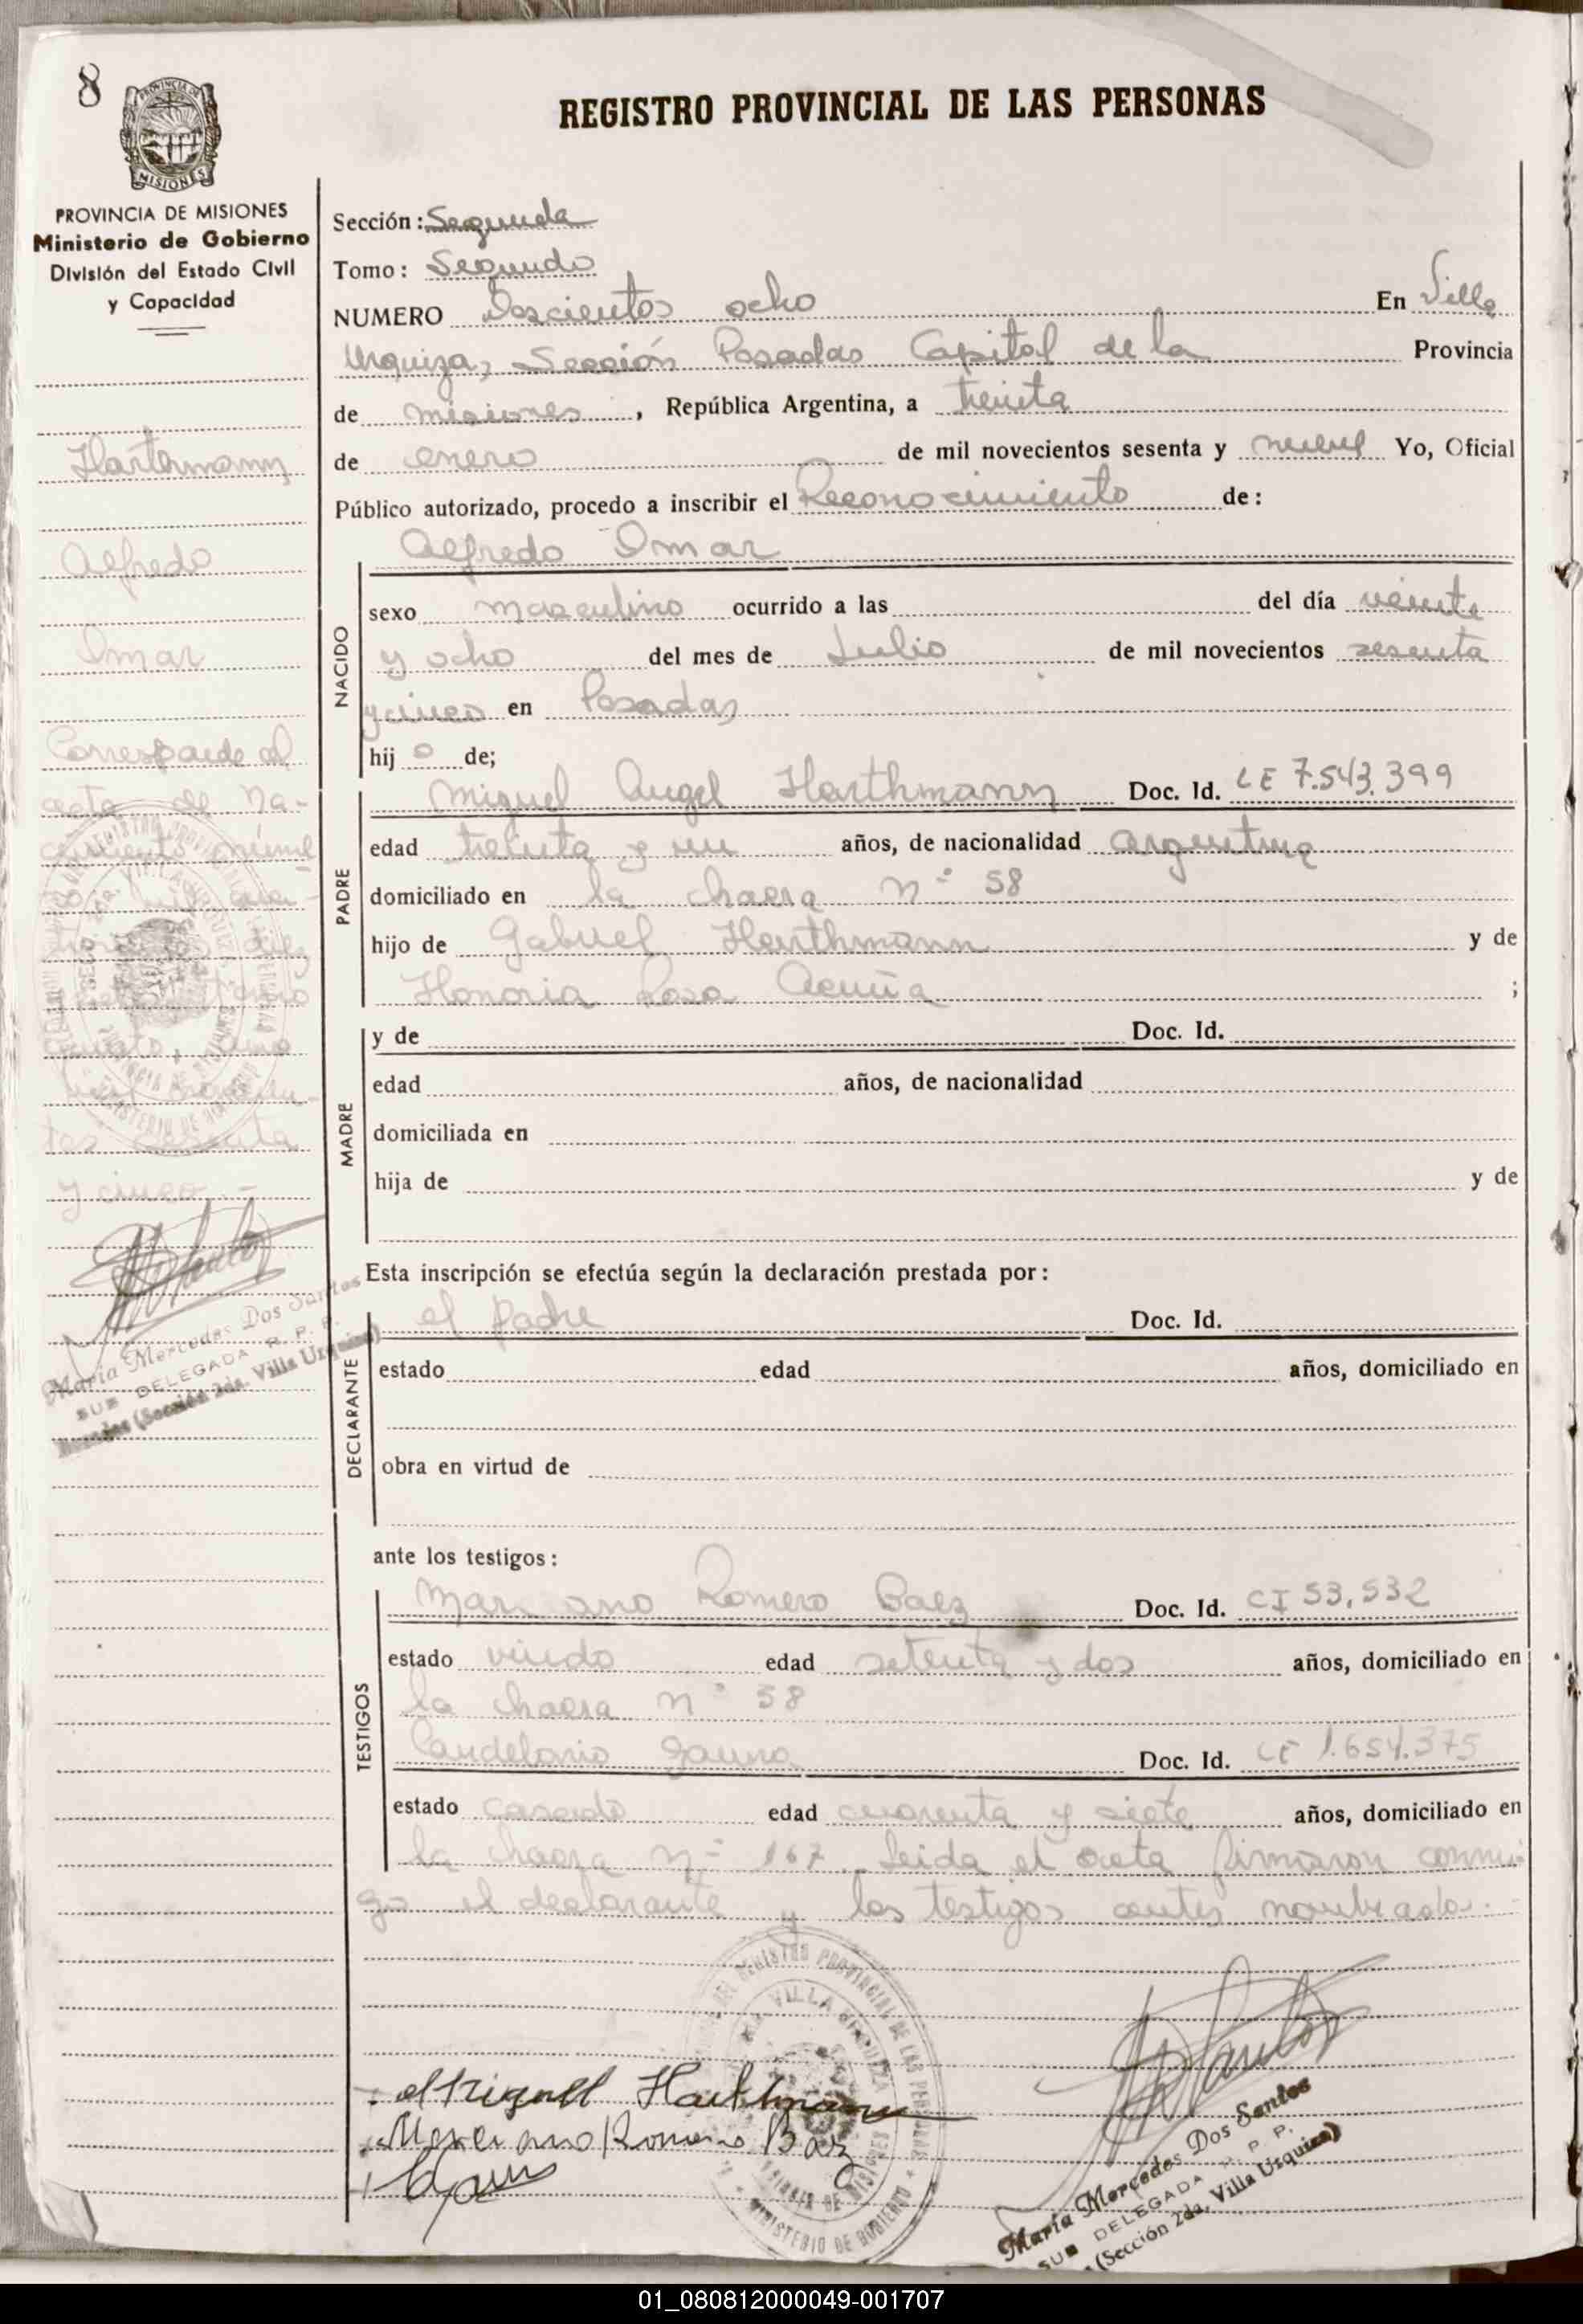 8
PROVINCIA DE
MISIONES
REGISTRO PROVINCIAL DE LAS PERSONAS
PROVINCIA DE MISIONES
Ministerio de Gobierno
División del Estado Civil
y Capacidad
Hartmann
Alfredo
Omar
Corresponde al
acta de na-
cimiento
diez
tomo
tos sesenta
y cinco.-
María Mercedes Dos Santos
SUB DELEGADA R. P. P.
(Sección 2da. Villa Urquiza)
Sección: Segunda
Tomo: Segundo
NUMERO Doscientos ocho En Villa
Urquiza, Sección Posadas Capital de la Provincia
de misiones, República Argentina, a treinta
de enero de mil novecientos sesenta y nueve Yo, Oficial
Público autorizado, procedo a inscribir el Reconocimiento de:
Alfredo Omar
NACIDO
sexo masculino ocurrido a las del día veinte
y ocho del mes de Julio de mil novecientos sesenta
y cinco en Posadas
hij o de;
PADRE
Miguel Angel Harthmann Doc. Id. LE 7.543.399
edad treinta y un años, de nacionalidad argentina
domiciliado en la chacra nº 58
hijo de Gabriel Harthmann y de
Honoria Rosa Acuña ;
MADRE
y de Doc. Id.
edad años, de nacionalidad
domiciliada en
hija de y de
Esta inscripción se efectúa según la declaración prestada por:
DECLARANTE
el padre Doc. Id.
estado edad años, domiciliado en
obra en virtud de
ante los testigos:
TESTIGOS
Marciano Romero Baez Doc. Id. CI 53.532
estado viudo edad setenta y dos años, domiciliado en
la chacra nº 58
Candelario Gauna Doc. Id. LE 1.654.375
estado casado edad cuarenta y siete años, domiciliado en
la chacra nº 167 Leida el acta firmaron conmi
go el declarante y los testigos antes nombrados.-
Miguel Harthmann
Marciano Romero Baz
María Mercedes Dos Santos
SUB DELEGADA R. P. P.
(Sección 2da. Villa Urquiza)
01_080812000049-001707